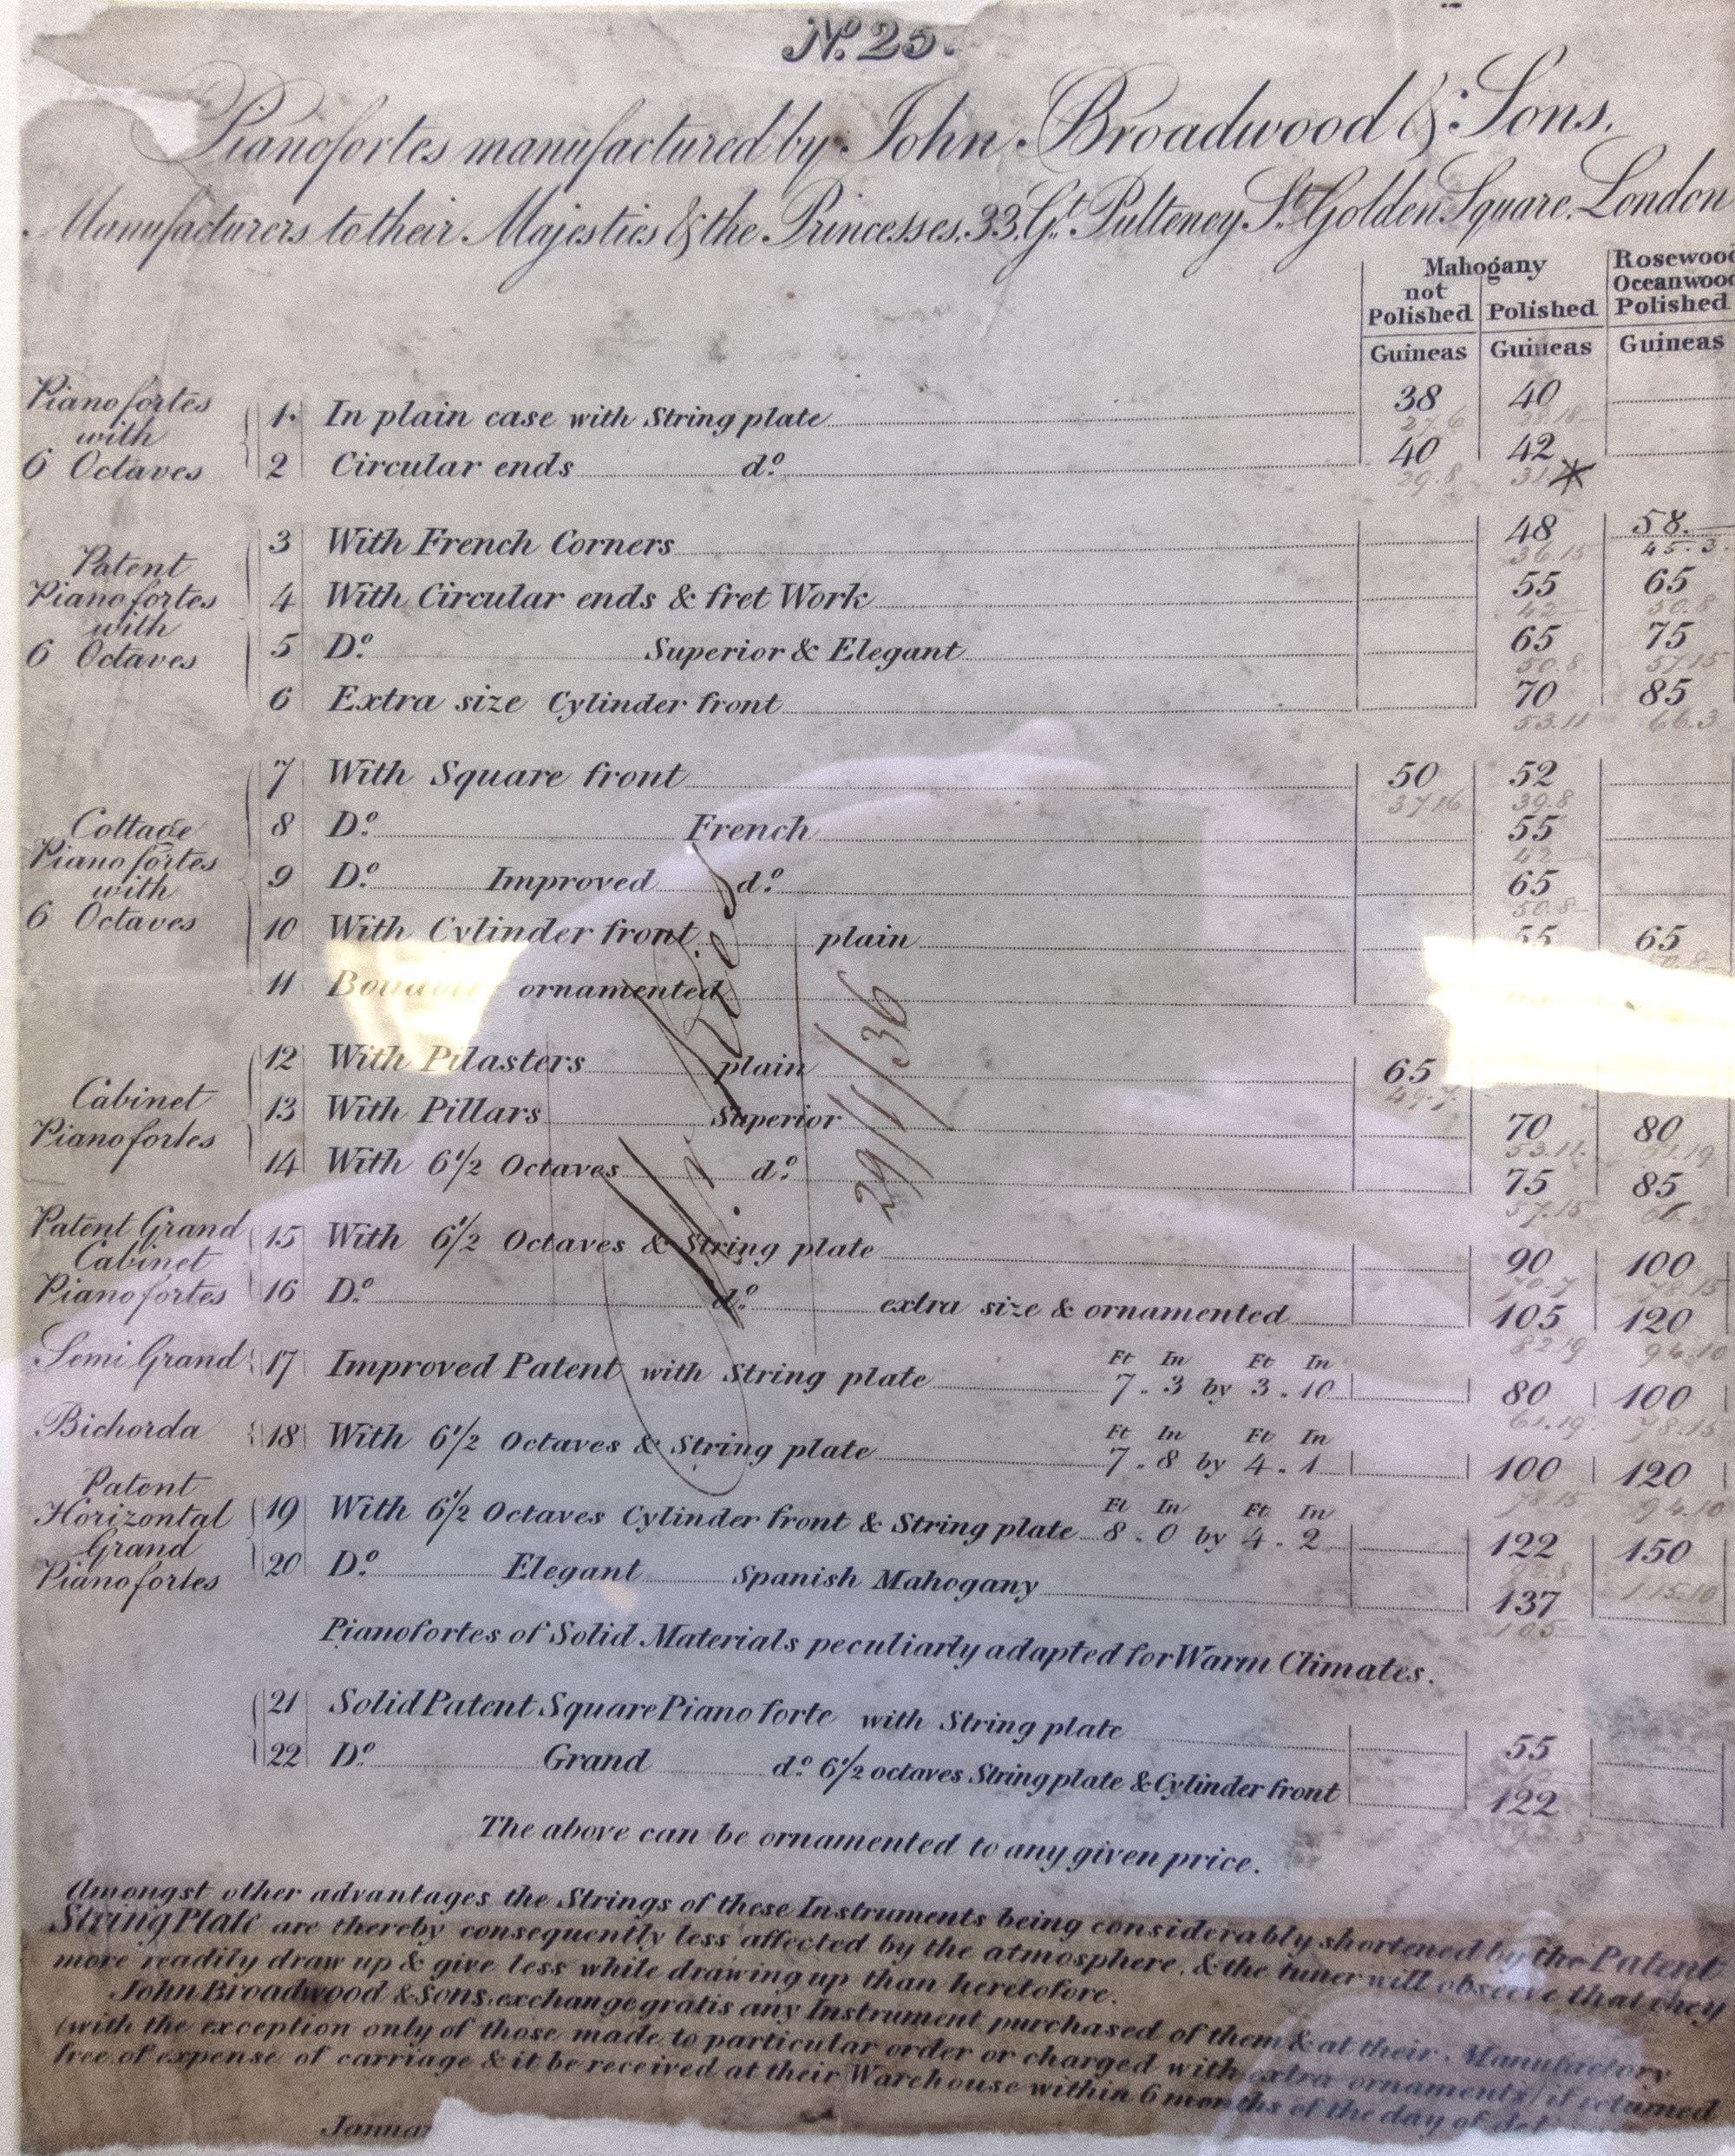 No. 25.
Pianofortes manufactured by John Broadwood & Sons.
Manufacturers to their Majesties & the Princesses, 33, Gt. Pulteney St. Golden Square, London
Mahogany
not Polished
Polished
Rosewood Oceanwood Polished
Guineas Guineas Guineas
Piano fortes with 6 Octaves
1. In plain case with String plate 38 40
27.6 28.18
2 Circular ends do. 40 42
29.8 31
Patent Piano fortes with 6 Octaves
3 With French Corners 48 58.
36.15 45.3.
4 With Circular ends & fret Work 55 65
42 50.8
5 Do. Superior & Elegant 65 75
50.8 57.15
6 Extra size Cylinder front 70 85
53.11 66.3
Cottage Piano fortes with 6 Octaves
7 With Square front 50 52
37.16 39.8
8 Do. French 55
42
9 Do. Improved do. 65
50.8
10 With Cylinder front plain 55 65
11 ornamented
Cabinet Piano fortes
12 With Pilasters plain 65
49.7.
13 With Pillars Superior 70 80
53.11. 61.19
14 With 6 1/2 Octaves do. 75 85
57.15 66.3
Patent Grand Cabinet Piano fortes
15 With 6 1/2 Octaves & String plate 90 100
70.7 78.15
16 Do. do. extra size & ornamented 105 120
82.19 94.10
Semi Grand
Ft In Ft In
17 Improved Patent with String plate 7. 3 by 3. 10 80 100
61.19. 78.15
Bichorda
Ft In Ft In
18 With 6 1/2 Octaves & String plate 7. 8 by 4. 1 100 120
78.15 94.10
Patent Horizontal Grand Piano fortes
Ft In Ft In
19 With 6 1/2 Octaves Cylinder front & String plate 8. 0 by 4. 2 122 150
92.8 115.10
20 Do. Elegant Spanish Mahogany 137
105
29/1/36
Pianofortes of Solid Materials peculiarly adapted for Warm Climates.
21 Solid Patent Square Piano forte with String plate 55
22 Do. Grand do. 6 1/2 octaves String plate & Cylinder front 122
The above can be ornamented to any given price.
Amongst other advantages the Strings of these Instruments being considerably shortened by the Patent
String Plate are thereby consequently less affected by the atmosphere, & the tuner will observe that they
more readily draw up & give less while drawing up than heretofore.
John Broadwood & Sons, exchange gratis any Instrument purchased of them & at their Manufactory
(with the exception only of those made to particular order or charged with extra ornaments) if returned
free of expense of carriage & it be received at their Warehouse within 6 months of the day of